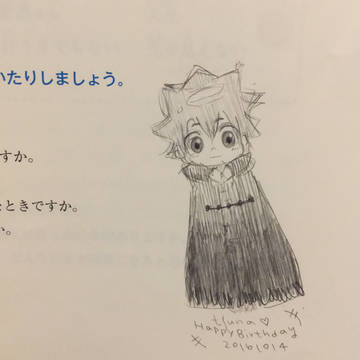 いたりしましょう。
すか。
なときですか。
か。
tsuna♡
Happy Birthday
20161014